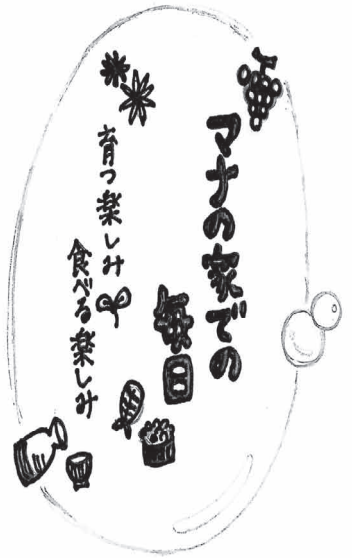 マナの家での
毎日
育つ楽しみ
食べる楽しみ